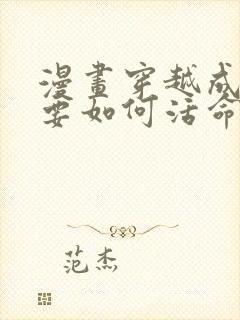 漫畫穿越成
要如何活命
范杰